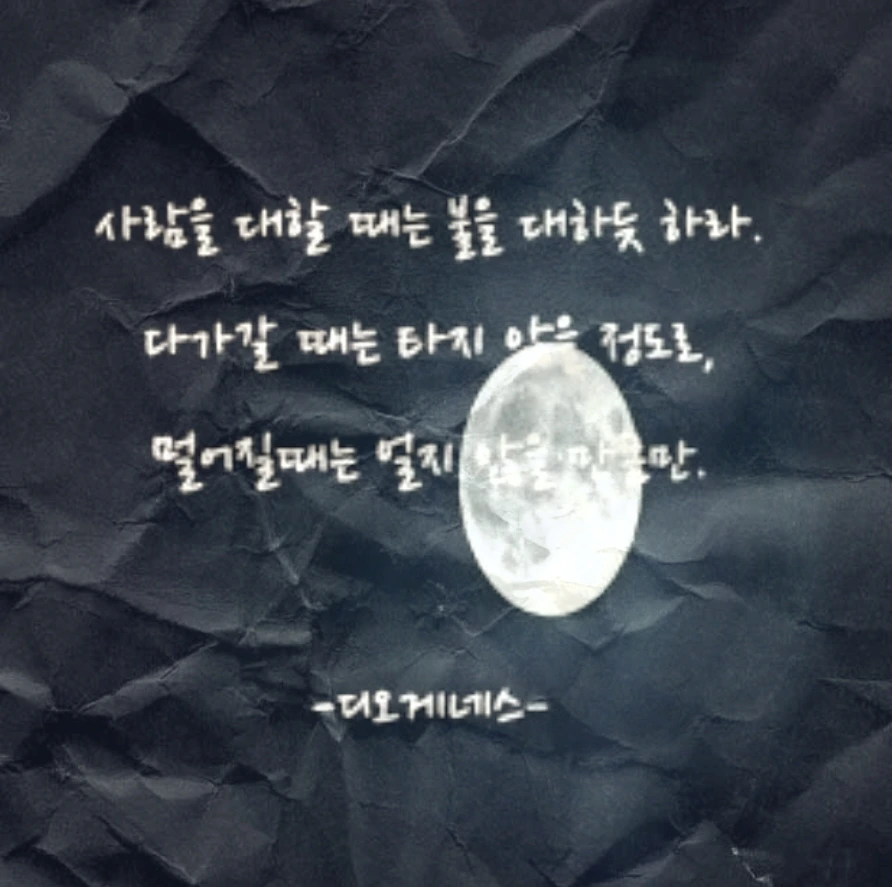 사람을 대할 때는 불을 대하듯 하라.
다가갈 때는 타지 않을 정도로,
멀어질때는 얼지 않을 만큼만.
-디오게네스-